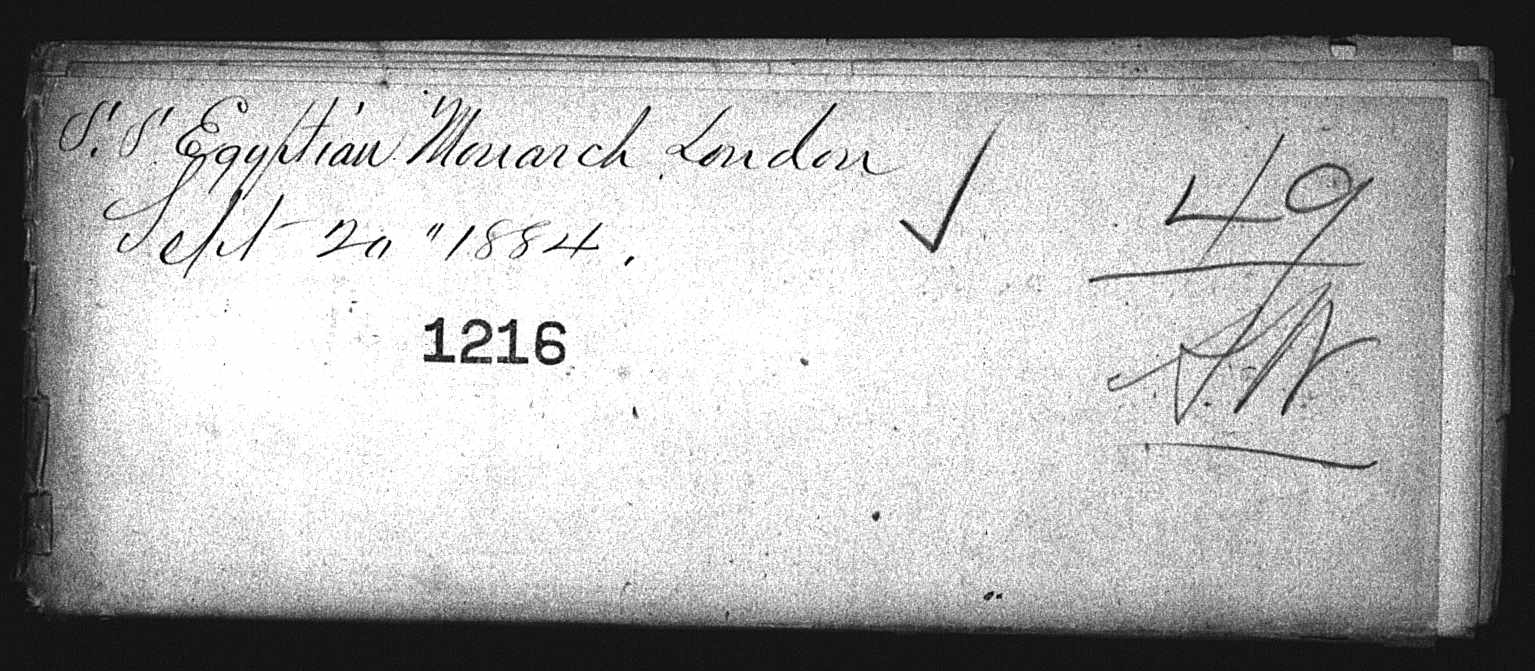 S. S. Egyptian Monarch London
Sept 20" 1884.
1216
49